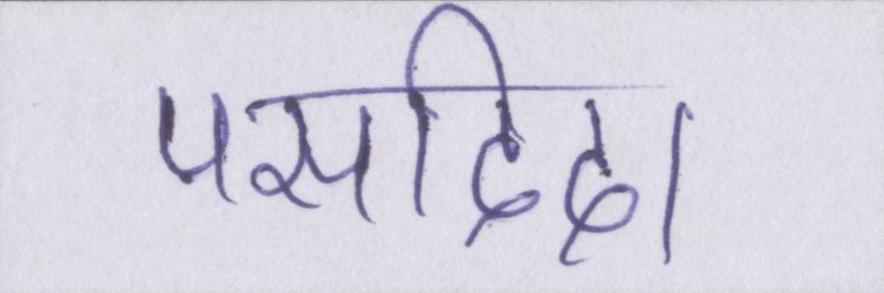 पसदिदा